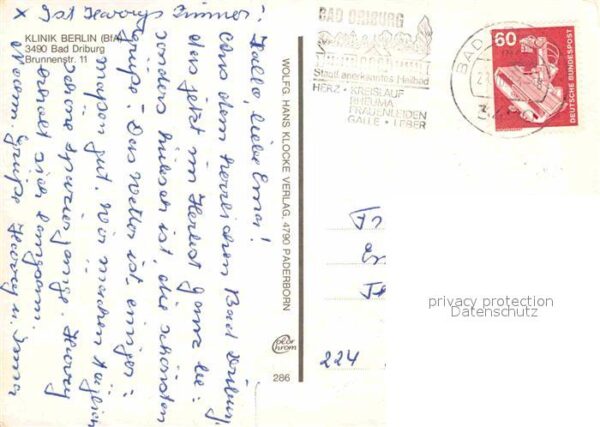 x Ist Harrys Zimmer!
KLINIK BERLIN (BfA)
3490 Bad Driburg
Brunnenstr. 11
Hallo, liebe Erna!
Aus dem herrlichen Bad Driburg,
das jetzt im Herbst ganz be-
sonders hübsch ist, die schönsten
Grüße - Das Wetter ist einiger-
maßen gut. Wir machen täglich
schöne Spaziergänge. Harry
erholt sich langsam.
Grüße Harry u.
WOLFG. HANS KLOCKE VERLAG, 4790 PADERBORN
color chrom
286
BAD DRIBURG
Staatl. anerkanntes Heilbad
HERZ · KREISLAUF
RHEUMA
FRAUENLEIDEN
GALLE · LEBER
BAD
60
DEUTSCHE BUNDESPOST
Fr
Er
224
privacy protection
Datenschutz